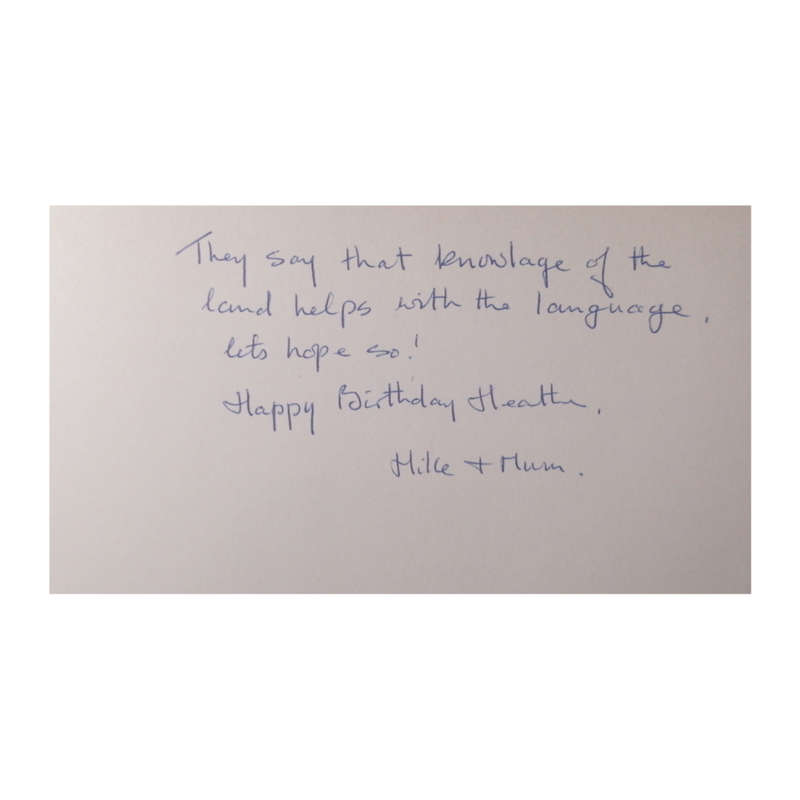 They say that knowlage of the
land helps with the language,
lets hope so!
Happy Birthday Heather,
Mike + Mum.